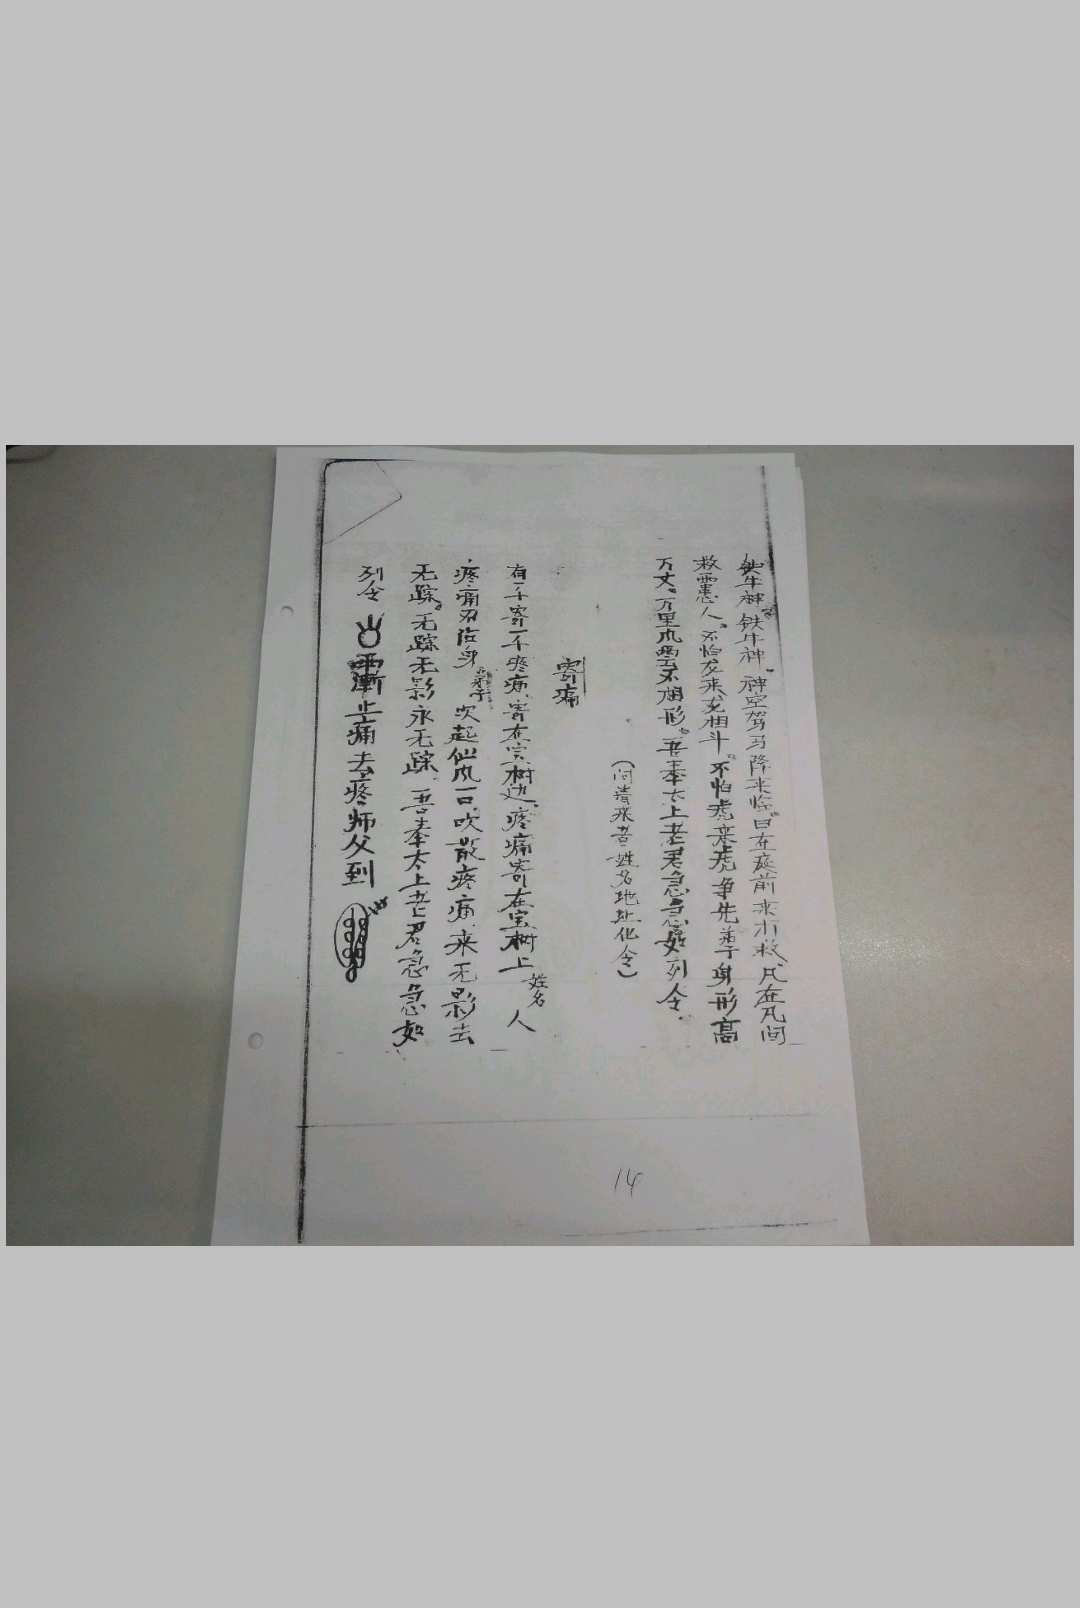 铁牛神铁牛神神空驾马降来临日在庭前来小救凡在凡间
救 人不怕龙来龙相斗不怕虎来虎争先弟子身形高
万丈万里风云不相形吾奉太上老君急急如列令
(问清来者姓名地址化令)
寄痛
有千寄一千疼痛寄在宝树边疼痛寄在宝树上姓名人
疼痛 身弟子吹起仙风一口吹散疼痛来无影去
无踪无踪无影永无踪吾奉太上老君急急如
列令 止痛去疼师父到
14